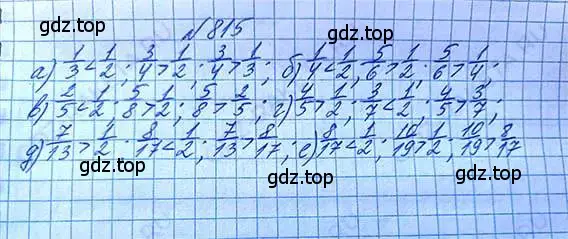 gdz.top
№ 815
gdz.top gdz.top
а) 1/3 < 1/2; 3/4 > 1/2; 3/4 > 1/3; б) 1/4 < 1/2; 5/6 > 1/2; 5/6 > 1/4;
в) 2/5 < 1/2; 5/8 > 1/2; 5/8 > 2/5; г) 4/5 > 1/2; 3/7 < 1/2; 4/5 > 3/7;
д) 7/13 > 1/2; 8/17 < 1/2; 7/13 > 8/17; е) 8/17 < 1/2; 10/19 > 1/2; 10/19 > 8/17
gdz.top gdz.top
gdz.top